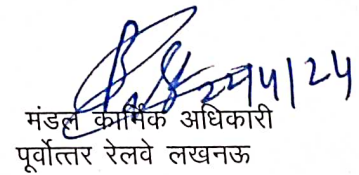 मंडल कार्मिक अधिकारी
पूर्वोत्तर रेलवे लखनऊ